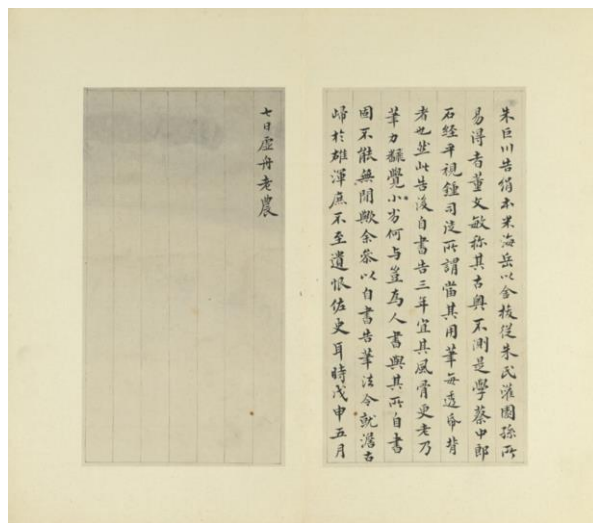 朱巨川告绢本米海岳以金梭従朱氏灌園孫所
易得者董文敏称其古奥不測是學蔡中郎
石經平視鍾司徒所謂當其用筆每透帋背
者也然此告後自書告三年宜其風骨更老乃
筆力飜覺小劣何与豈為人書與其所自書
固不能無閒歟余叅以自書告筆法令就澹古
歸於雄渾庶不至遺恨佐史耳時戊申五月
七日虚舟老農